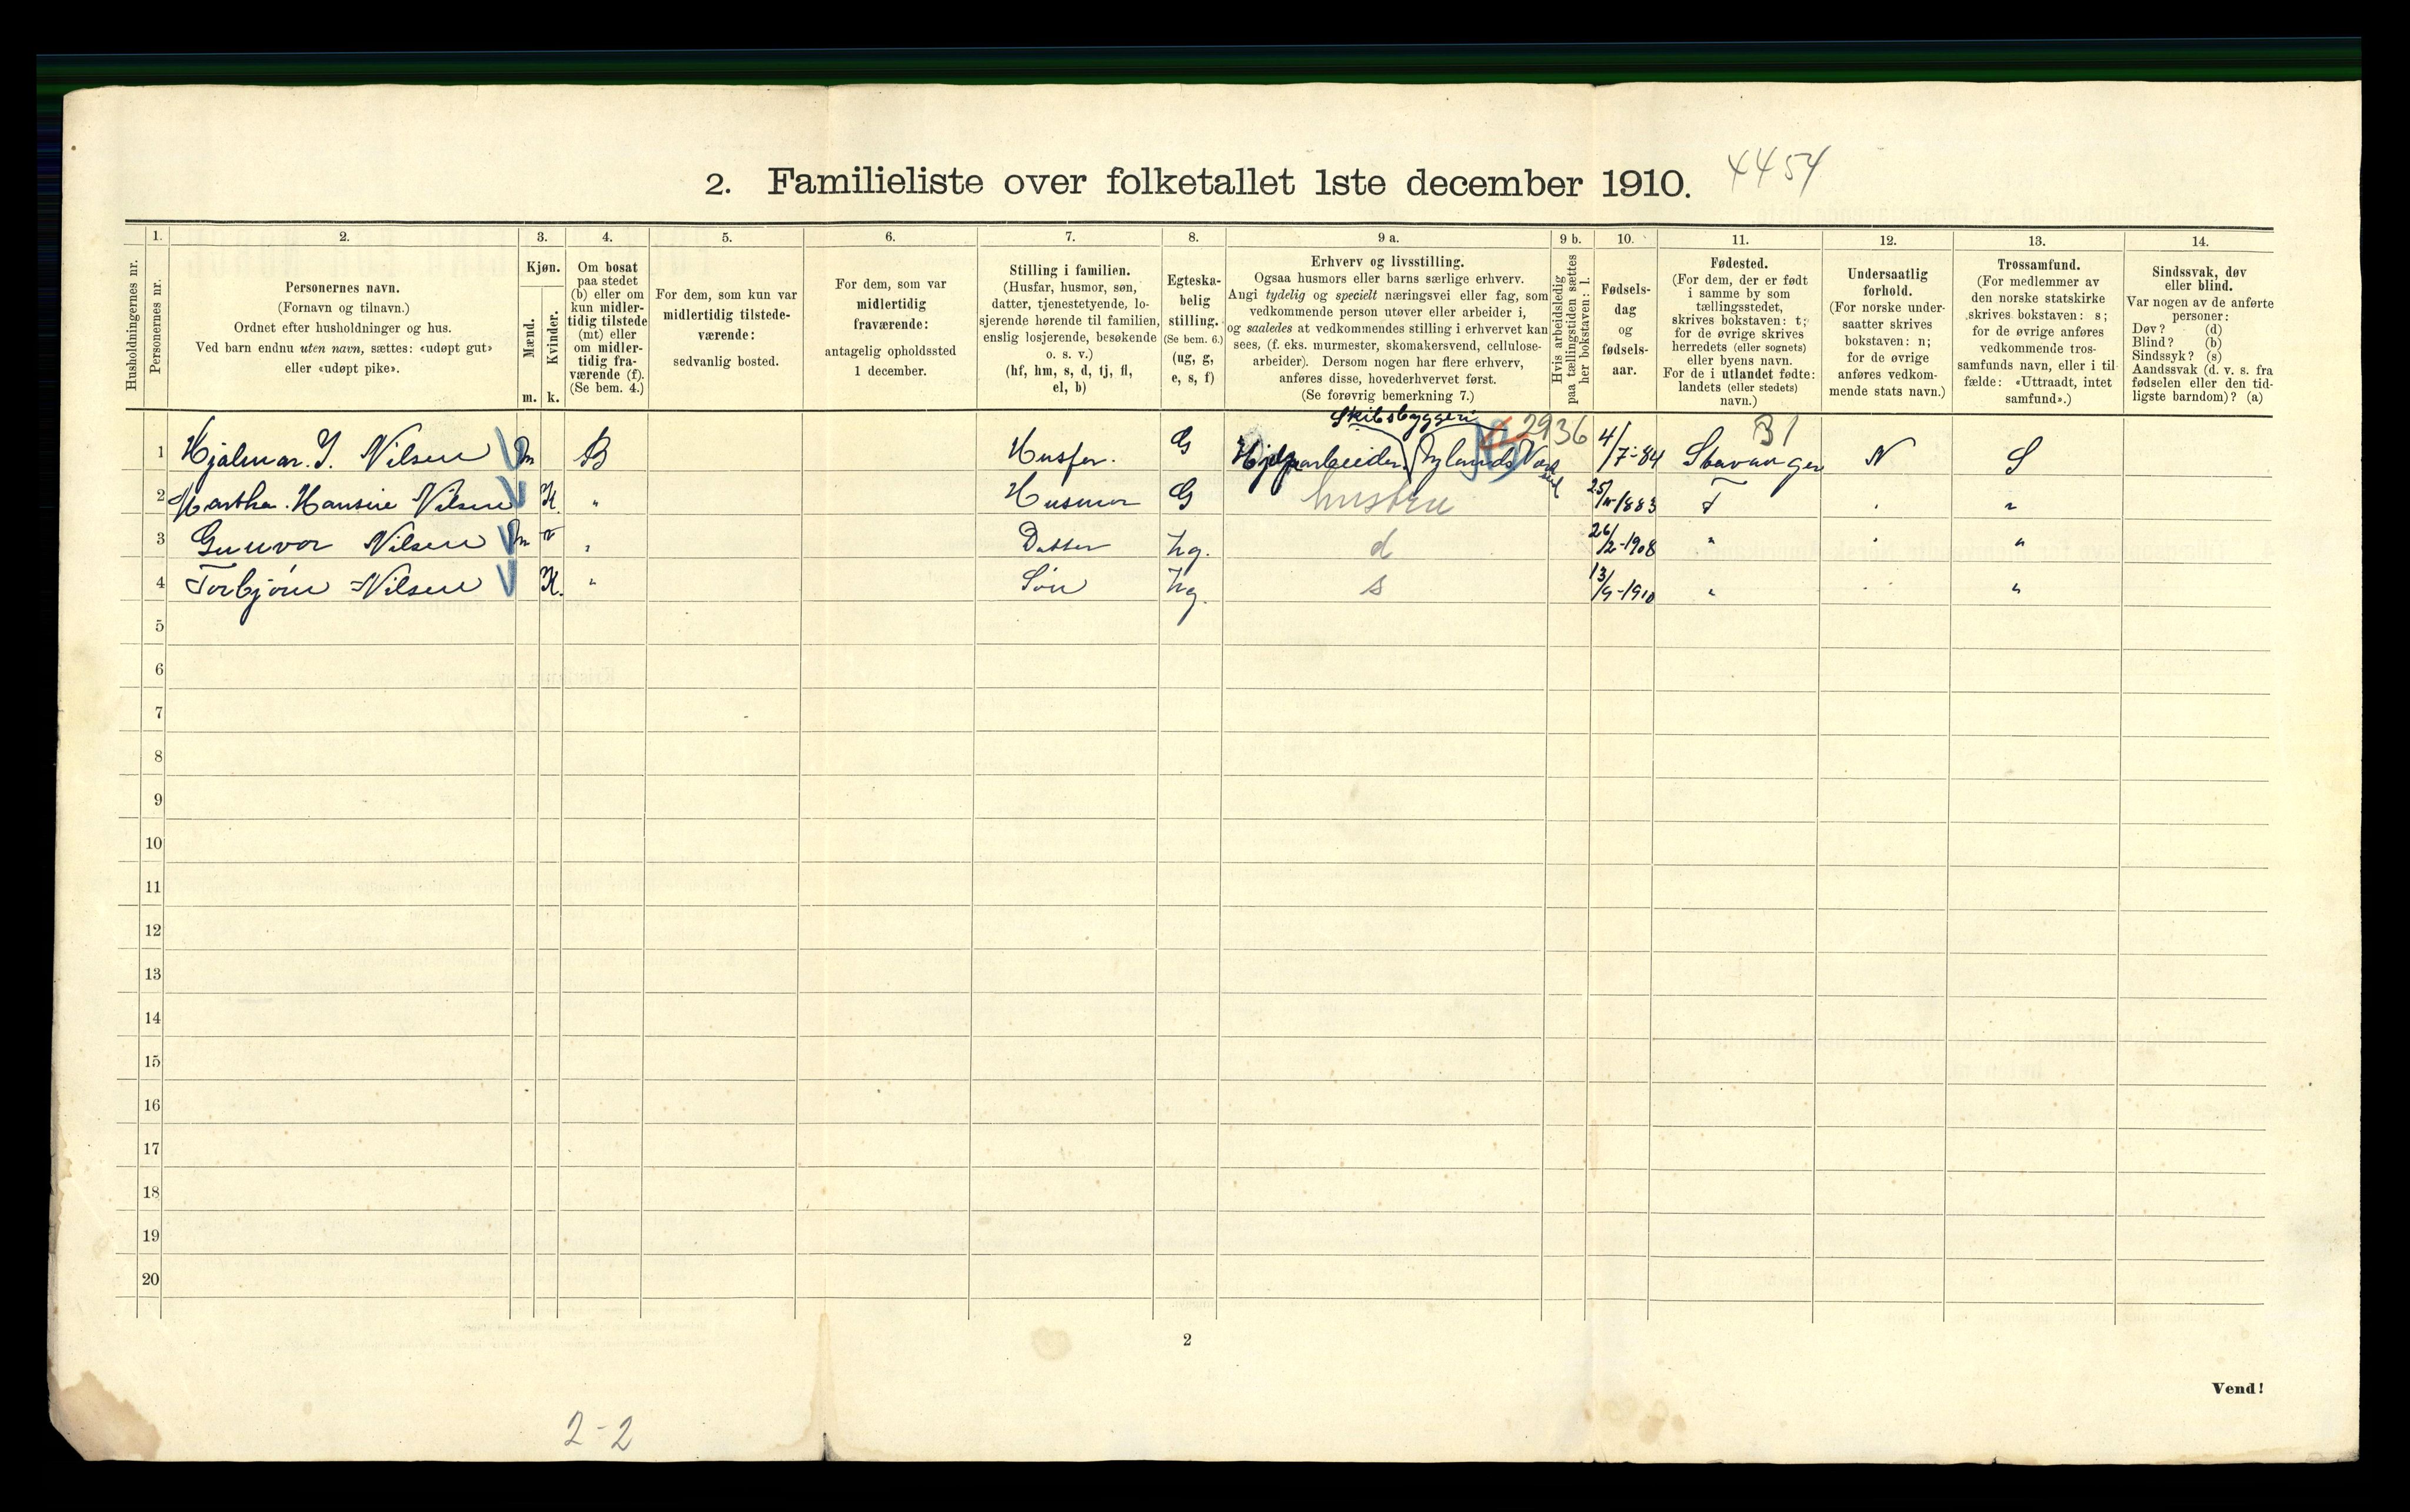 2. Familieliste over folketallet 1ste december 1910. 4454
Husholdningernes nr.
1.
Personernes nr.
2.
Personernes navn.
(Fornavn og tilnavn.)
Ordnet efter husholdninger og hus.
Ved barn endnu uten navn, sættes: «udøpt gut»
eller «udøpt pike».
3.
Kjøn.
Mænd.
Kvinder.
m. k.
4.
Om bosat
paa stedet
(b) eller om
kun midler-
tidig tilstede
(mt) eller
om midler-
tidig fra-
værende (f).
(Se bem. 4.)
5.
For dem, som kun var
midlertidig tilstede-
værende:
sedvanlig bosted.
6.
For dem, som var
midlertidig
fraværende:
antagelig opholdssted
1 december.
7.
Stilling i familien.
(Husfar, husmor, søn,
datter, tjenestetyende, lo-
sjerende hørende til familien,
enslig losjerende, besøkende
o. s. v.)
(hf, hm, s, d, tj, fl,
el, b)
8.
Egteska-
belig
stilling.
(Se bem. 6.)
(ug, g,
e, s, f)
9 a.
Erhverv og livsstilling.
Ogsaa husmors eller barns særlige erhverv.
Angi tydelig og specielt næringsvei eller fag, som
vedkommende person utøver eller arbeider i,
og saaledes at vedkommendes stilling i erhvervet kan
sees, (f. eks. murmester, skomakersvend, cellulose-
arbeider). Dersom nogen har flere erhverv,
anføres disse, hovederhvervet først.
(Se forøvrig bemerkning 7.)
9 b.
Hvis arbeidsledig
paa tællingstiden sættes
her bokstaven: l.
10.
Fødsels-
dag
og
fødsels-
aar.
11.
Fødested.
(For dem, der er født
i samme by som
tællingsstedet,
skrives bokstaven: t;
for de øvrige skrives
herredets (eller sognets)
eller byens navn.
For de i utlandet fødte:
landets (eller stedets)
navn.)
12.
Undersaatlig
forhold.
(For norske under-
saatter skrives
bokstaven: n;
for de øvrige
anføres vedkom-
mende stats navn.)
13.
Trossamfund.
(For medlemmer av
den norske statskirke
skrives bokstaven: s;
for de øvrige anføres
vedkommende tros-
samfunds navn, eller i til-
fælde: «Uttraadt, intet
samfund».)
14.
Sindssvak, døv
eller blind.
Var nogen av de anførte
personer:
Døv? (d)
Blind? (b)
Sindssyk? (s)
Aandssvak (d. v. s. fra
fødselen eller den tid-
ligste barndom)? (a)
Skibsbyggeri 2936 31
1 Hjalmar. J. Nilsen m B Husfar. G Hjelpearbeider. Nylands 4/7-84 Stavanger N S
2 Martha. Hansine Nilsen K. " Husmor G hustru 1883 T " "
3 Gunvor Nilsen m " Datter Ug. d 26/2-1908 " " "
4 Torbjørn Nilsen K. " Søn Ug. s 13/9-1910 " " "
5
6
7
8
9
10
11
12
13
14
15
16
17
18
19
20
2
Vend!
2-2